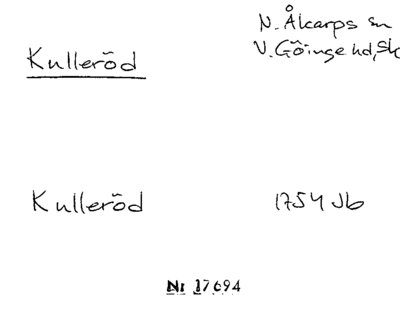 N. Åkarps sn
Kulleröd
V. Göinge hd, Sk
Kulleröd 1754 Jb
Nr 17694